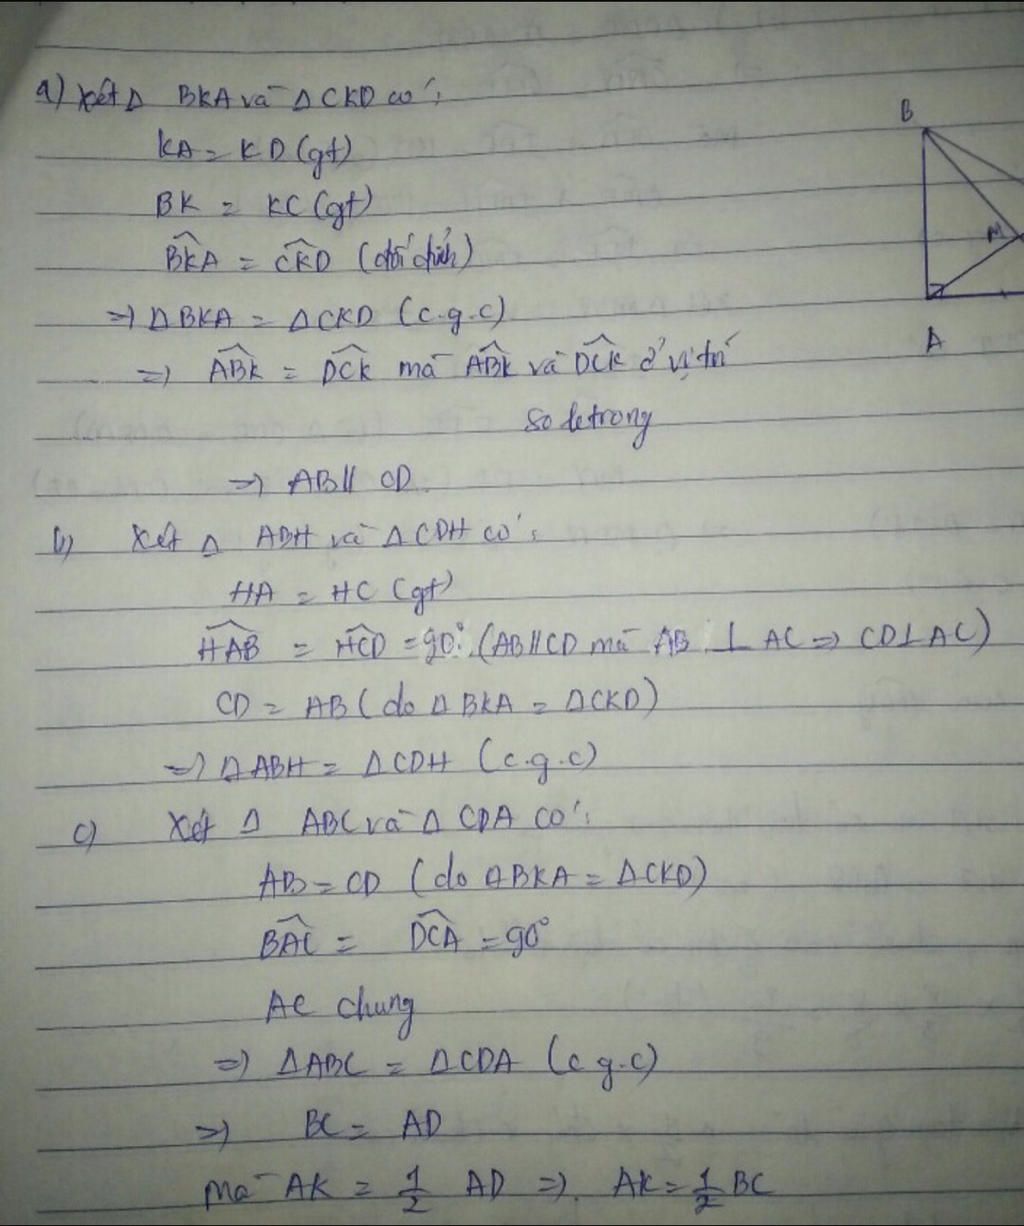 a) Xét Δ BKA và Δ CKD có:
B
KA = KD (gt)
BK = KC (gt)
M
BKA = CKD (đối đỉnh)
=> Δ BKA = Δ CKD (c.g.c)
A
=> ABK = DCK mà ABK và DCK ở vị trí
so le trong
=> AB // CD.
b) Xét Δ ABH và Δ CDH có:
HA = HC (gt)
HAB = HCD = 90° (AB//CD mà AB ⊥ AC => CD ⊥ AC)
CD = AB (do Δ BKA = Δ CKD)
=> Δ ABH = Δ CDH (c.g.c)
c) Xét Δ ABC và Δ CDA có:
AB = CD (do Δ BKA = Δ CKD)
BAC = DCA = 90°
AC chung
=> Δ ABC = Δ CDA (c g.c)
=> BC = AD
mà AK = 1/2 AD => AK = 1/2 BC